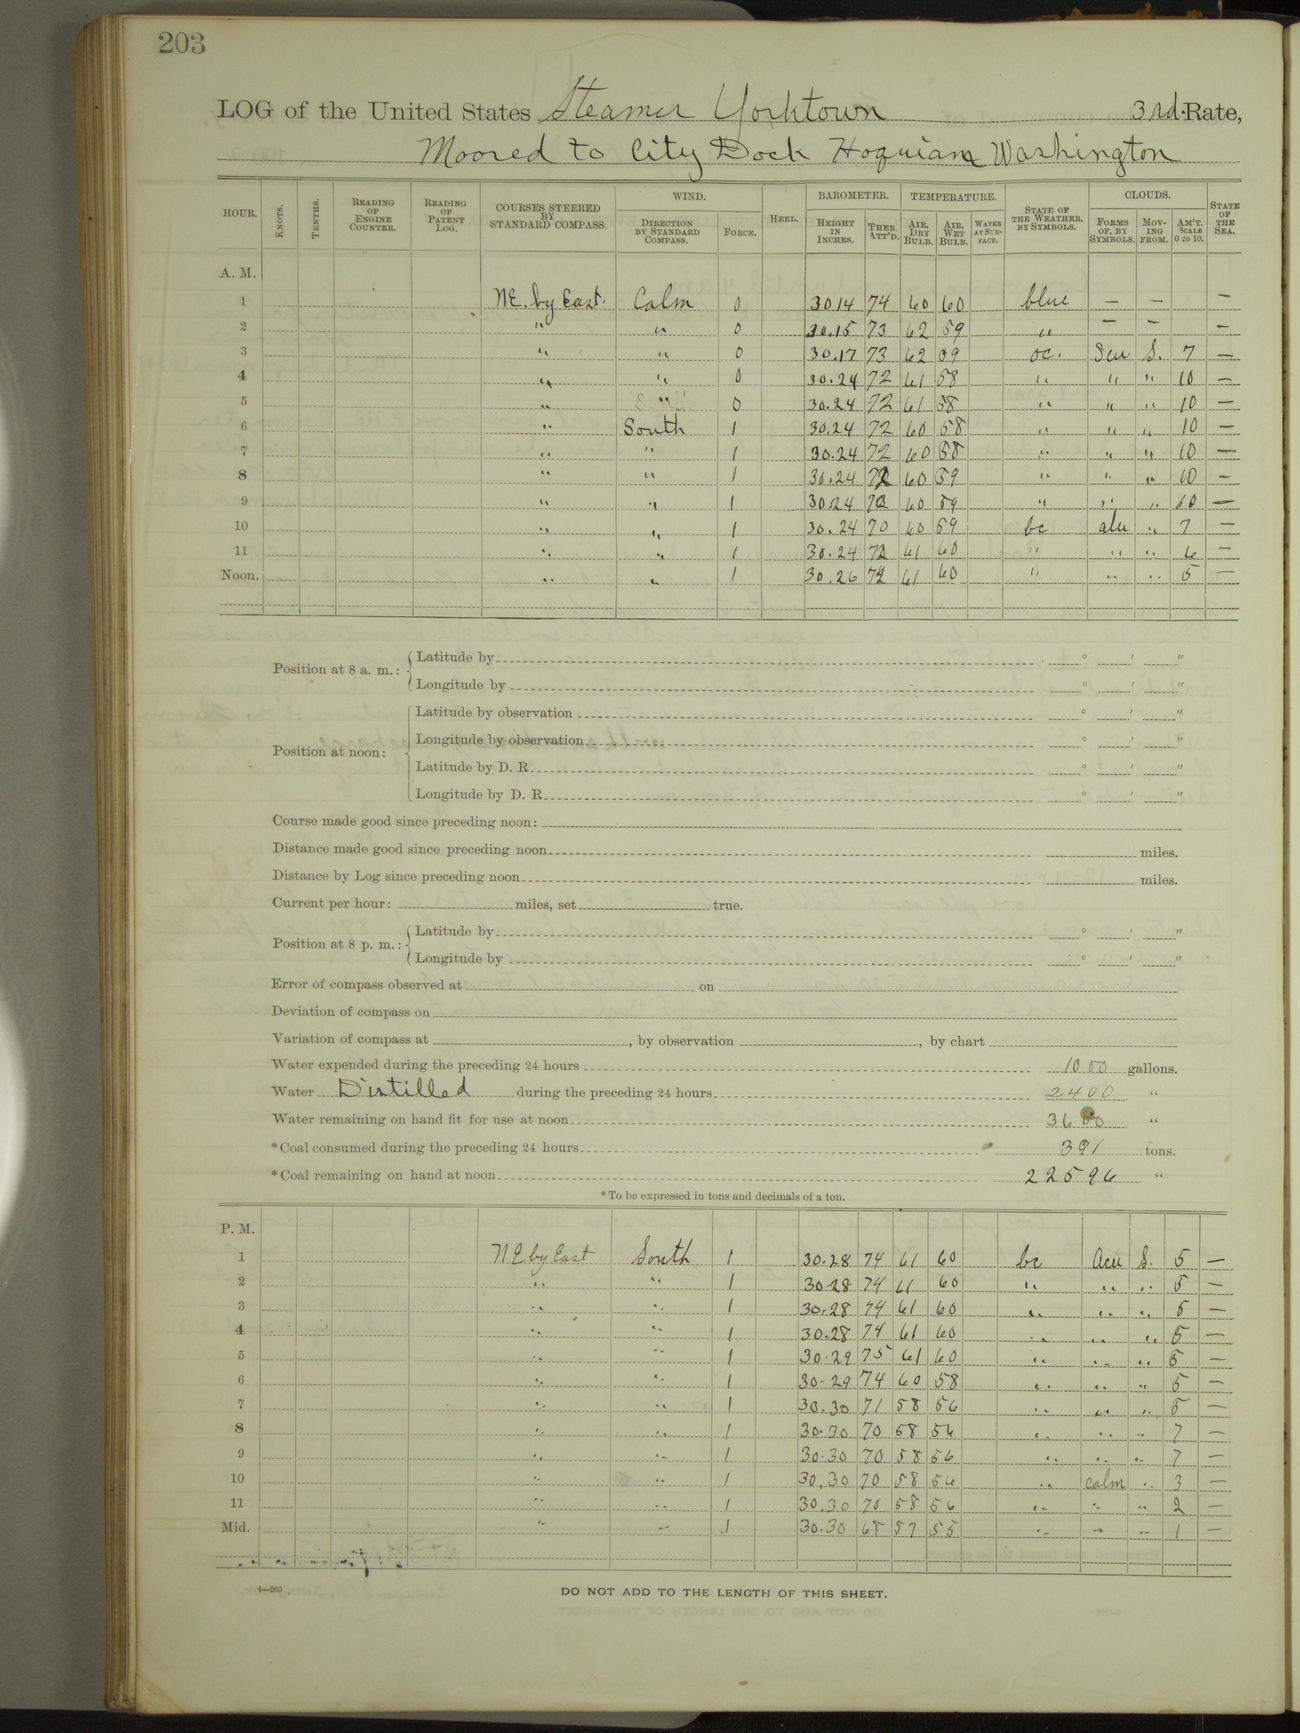 203
LOG of the United States Steamer Yorktown 3rd. Rate,
Moored to City Dock Hoquiam Washington
HOUR. KNOTS. TENTHS. READING OF ENGINE COUNTER. READING OF PATENT LOG. COURSES STEERED BY STANDARD COMPASS. WIND. DIRECTION BY STANDARD COMPASS. FORCE. HEEL. BAROMETER. HEIGHT IN INCHES. THER. ATT'D. TEMPERATURE. AIR, DRY BULB. AIR, WET BULB. WATER AT SURFACE. STATE OF THE WEATHER, BY SYMBOLS. CLOUDS. FORMS OF, BY SYMBOLS. MOVING FROM. AM'T. SCALE 0 TO 10. STATE OF THE SEA.
A. M.
1 NE. by East. Calm 0 30.14 74 60 60 blue — — —
2 " " 0 30.15 73 62 59 " — — —
3 " " 0 30.17 73 62 59 oc. Scu S. 7 —
4 " " 0 30.24 72 61 58 " " " 10 —
5 " " 0 30.24 72 61 58 " " " 10 —
6 " South 1 30.24 72 60 58 " " " 10 —
7 " " 1 30.24 72 60 58 " " " 10 —
8 " " 1 30.24 72 60 59 " " " 10 —
9 " " 1 30.24 60 59 " " " 10 —
10 " " 1 30.24 70 60 59 bc " 7 —
11 " " 1 30.24 72 61 60 " " " 6 —
Noon. " " 1 30.26 72 61 60 " " " 5 —
Position at 8 a. m.: Latitude by ° ' "
Longitude by ° ' "
Position at noon: Latitude by observation ° ' "
Longitude by observation ° ' "
Latitude by D. R. ° ' "
Longitude by D. R. ° ' "
Course made good since preceding noon:
Distance made good since preceding noon miles.
Distance by Log since preceding noon miles.
Current per hour: miles, set true.
Position at 8 p. m.: Latitude by ° ' "
Longitude by ° ' "
Error of compass observed at on
Deviation of compass on
Variation of compass at , by observation , by chart
Water expended during the preceding 24 hours 1000 gallons.
Water Distilled during the preceding 24 hours 2400 "
Water remaining on hand fit for use at noon 3600 "
*Coal consumed during the preceding 24 hours 391 tons.
*Coal remaining on hand at noon 22596 "
*To be expressed in tons and decimals of a ton.
P. M.
1 NE by East South 1 30.28 74 61 60 bc Acu S. 5 —
2 " " 1 30.28 74 61 60 " " " 5 —
3 " " 1 30.28 74 61 60 " " " 5 —
4 " " 1 30.28 74 61 60 " " " 5 —
5 " " 1 30.29 75 61 60 " " " 5 —
6 " " 1 30.29 74 60 58 " " " 5 —
7 " " 1 30.30 71 58 56 " " " 5 —
8 " " 1 30.30 70 58 56 " " " 7 —
9 " " 1 30.30 70 58 56 " " " 7 —
10 " " 1 30.30 70 58 56 " calm " 3 —
11 " " 1 30.30 70 58 56 " " " 2 —
Mid. " " 1 30.30 68 57 55 " " " 1 —
4—265
DO NOT ADD TO THE LENGTH OF THIS SHEET.